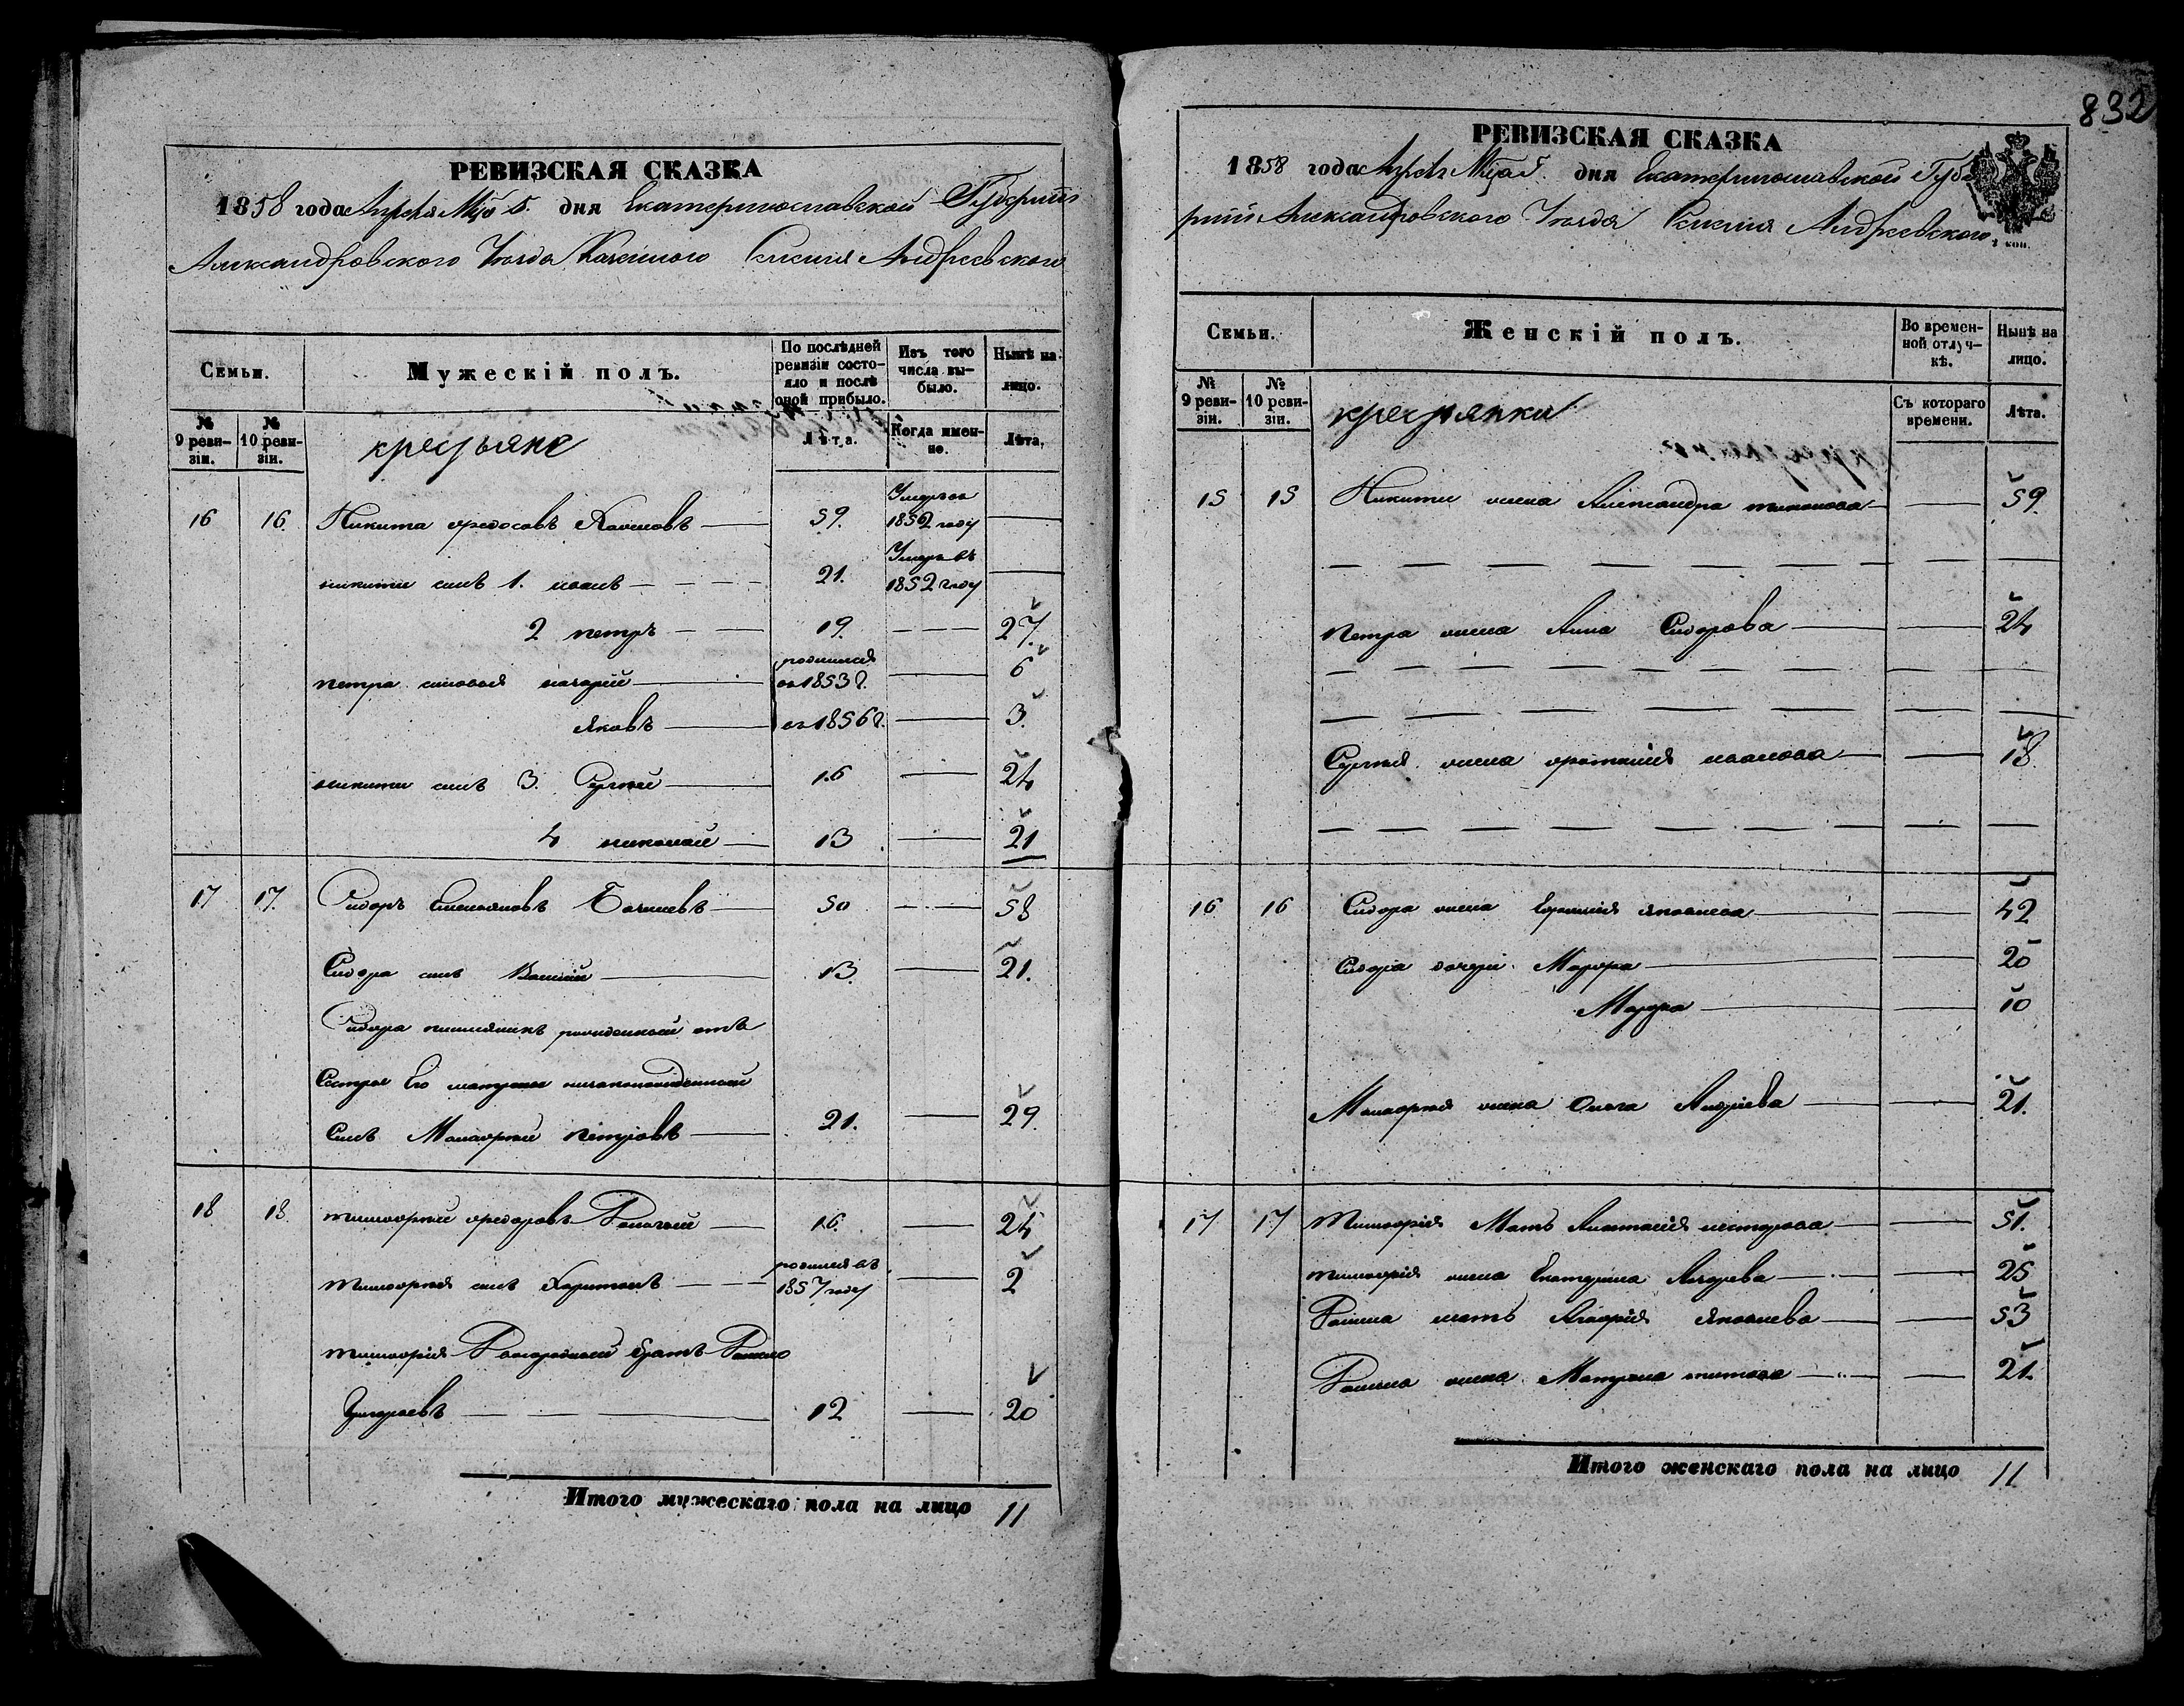 РЕВИЗСКАЯ СКАЗКА
1858 года Апреля Мца 5. дня Екатеринославской Губернии
Александровского Уезда Казенного Селения Андреевского
Семьи.
Мужескій полъ.
По послѣдней ревизіи состояло и послѣ оной прибыло.
Изъ того числа выбыло.
Нынѣ на лицо.
№ 9 ревизіи.
№ 10 ревизіи.
крестьяне
Лѣта.
Когда именно.
Лѣта.
16 16 Никита Федосовъ 59. Умеръ въ 1852 году
никиты сынъ 1. иванъ 21. Умеръ въ 1852 году
2 петръ 19. 27.
петра сыновья назарій родился въ 1853 г. 6
яковъ въ 1856 г. 3.
никиты сынъ 3. Сергей 16 24
4 николай 13 21
17 17. Сидоръ Емельяновъ 50 58
Сидора сынъ Василий 13. 21.
Сидора племянник рожденный отъ
Сестры Его матроны незаконнорожденный
Сынъ Малафей петровъ 21. 29.
18 18. тимофей федоровъ 16. 24
тимофея сынъ Харитонъ родился въ 1857 году 2
тимофея братъ Роман
Григорьевъ 12 20
Итого мужескаго пола на лицо 11
832
РЕВИЗСКАЯ СКАЗКА
1858 года Апреля Мца 5. дня Екатеринославской Губе
рнии Александровского Уезда Селения Андреевского
Семьи.
Женскій полъ.
Во временной отлучкѣ.
Нынѣ на лицо.
№ 9 ревизіи.
№ 10 ревизіи.
крестьянки
Съ котораго времени.
Лѣта.
15 15 Никиты жена Александра 59
петра жена Анна Сидорова 24
Сергея жена иванова 18
16 16 Сидора жена Ефимия яковлева 42
Сидора дочери Марфа 20
Марфа 10
Малафея жена Ольга Андреева 21.
17 17 тимофея Мать Анастасия нестерова 51.
тимофея жена Екатерина 25
Романа мать яковлева 53
Романа жена Матрена титова 21.
Итого женскаго пола на лицо 11.